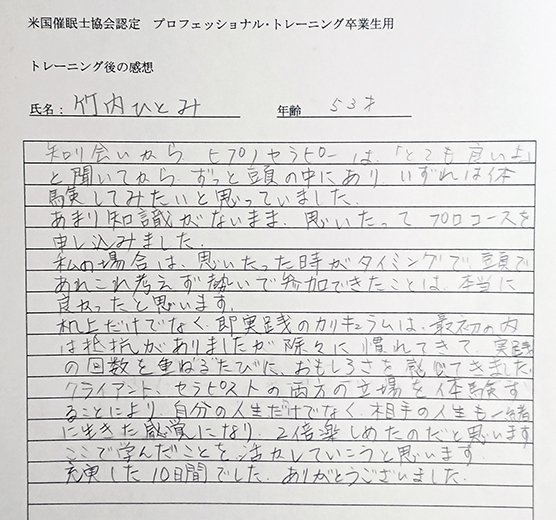 米国催眠士協会認定　プロフェッショナル・トレーニング卒業生用
トレーニング後の感想
氏名： 竹内ひとみ　年齢 53才
知り合いから ヒプノセラピーは、「とても良いよ」
と聞いてから、ずっと頭の中にあり、いずれは体
験してみたいと思っていました。
あまり知識がないまま、思いたって プロコースを
申し込みました。
私の場合は、思いたった時がタイミングで、頭で
あれこれ考えず勢いで参加できたことは、本当に
良かったと思います。
机上だけでなく、即実践のカリキュラムは、最初の内
は抵抗がありましたが徐々に慣れてきて、実践
の回数を重ねるたびに、おもしろさを感じてきました。
クライアント、セラピストの両方の立場を体験す
ることにより、自分の人生だけでなく、相手の人生も一緒
に生きた感覚になり、2倍楽しめたのだと思います。
ここで学んだことを活かしていこうと思います。
充実した10日間でした。ありがとうございました。